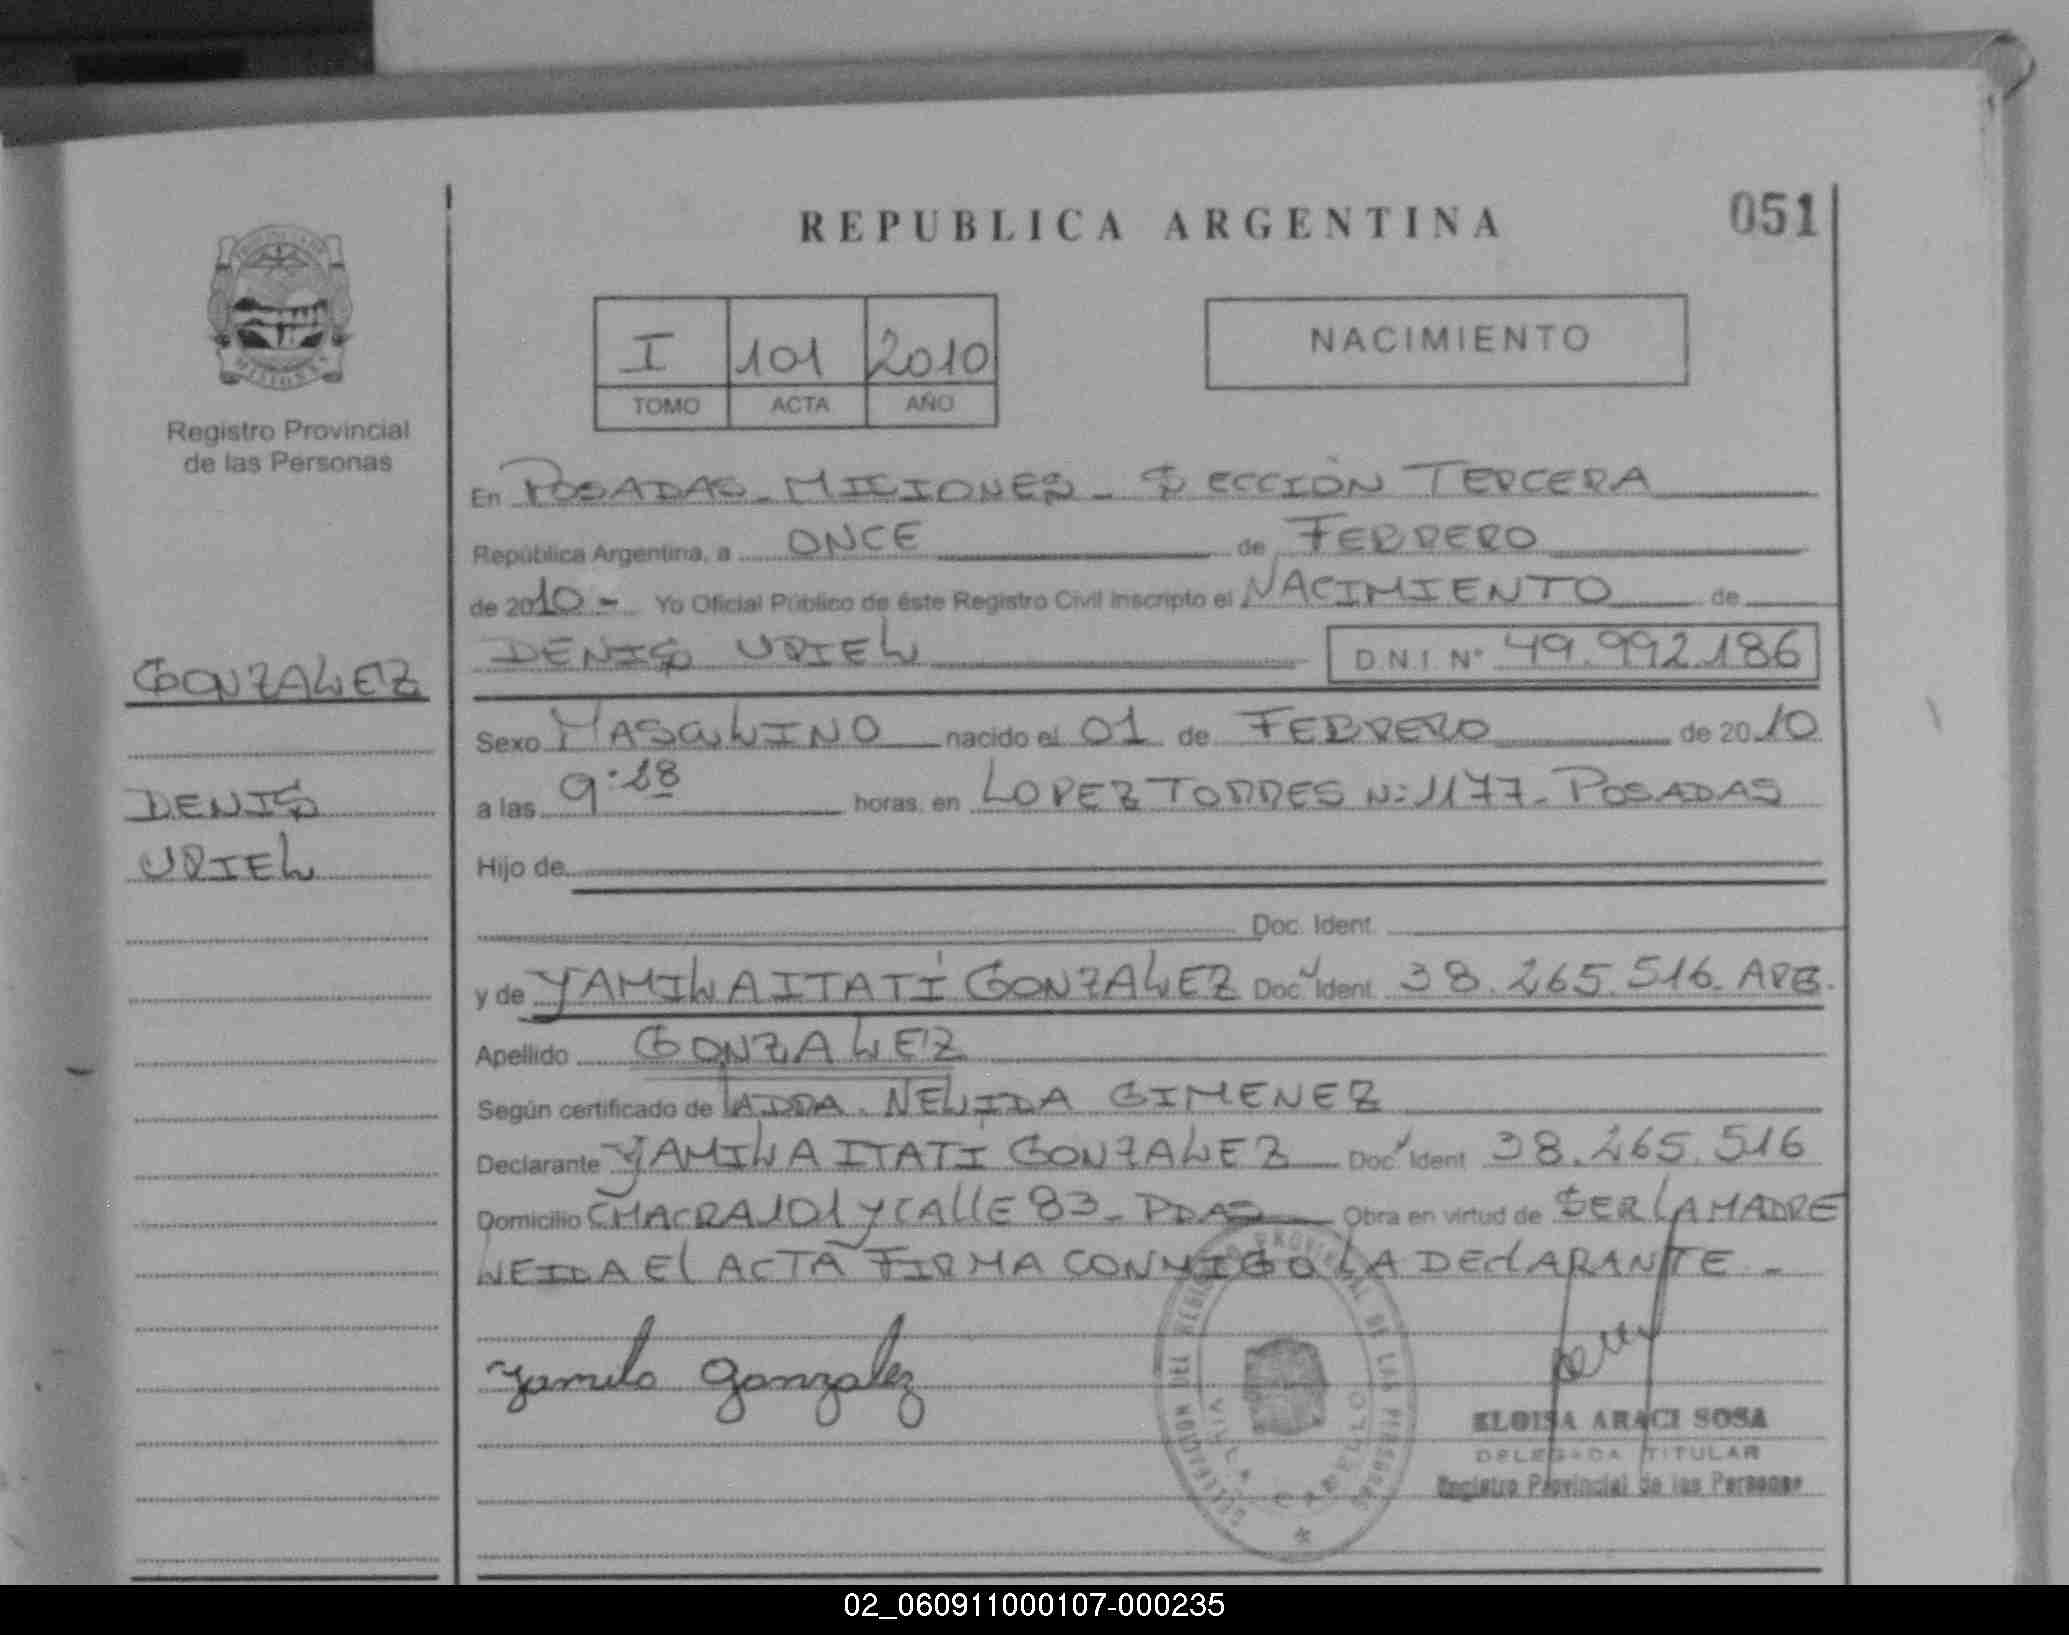 REPUBLICA ARGENTINA
051
MISIONES
Registro Provincial
de las Personas
I 101 2010
TOMO ACTA AÑO
NACIMIENTO
En POSADAS - MISIONES - SECCIÓN TERCERA
República Argentina, a ONCE de FEBRERO
de 2010 - Yo Oficial Público de éste Registro Civil inscripto el NACIMIENTO de
DENIS URIEL D.N.I. Nº 49.992.186
GONZALEZ
DENIS
URIEL
Sexo MASCULINO nacido el 01 de FEBRERO de 2010
a las 9:18 horas, en LOPEZ TORRES Nº 1177 - POSADAS
Hijo de
Doc. Ident.
y de YAMILA ITATÍ GONZALEZ Doc. Ident. 38.265.516. ARG.
Apellido GONZALEZ
Según certificado de NELIDA GIMENEZ
Declarante YAMILA ITATI GONZALEZ Doc. Ident. 38.265.516
Domicilio CHACRA 101 y CALLE 83 - PDAS Obra en virtud de SER LA MADRE
LEIDA El ACTA FIRMA CONMIGO LA DEClARANTE -
Yamila Gonzalez
DELEGACION DEL REGISTRO PROVINCIAL DE LAS PERSONAS
VILLA CABELLO
ELOISA ARACI SOSA
DELEGADA TITULAR
Registro Provincial de las Personas
02_060911000107-000235